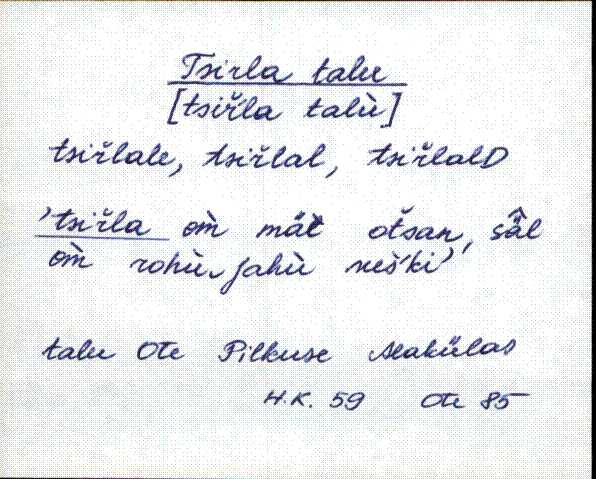 Tsirla talu
[tsiřla talù]
tsiřlale, tsiřlal, tsiřlalD
'tsiřla om̀ mäe otsan, sääl
om̀ rohù jahù neški'
talu Ote Pilkuse Alakülas
H.K. 59 Ote 85